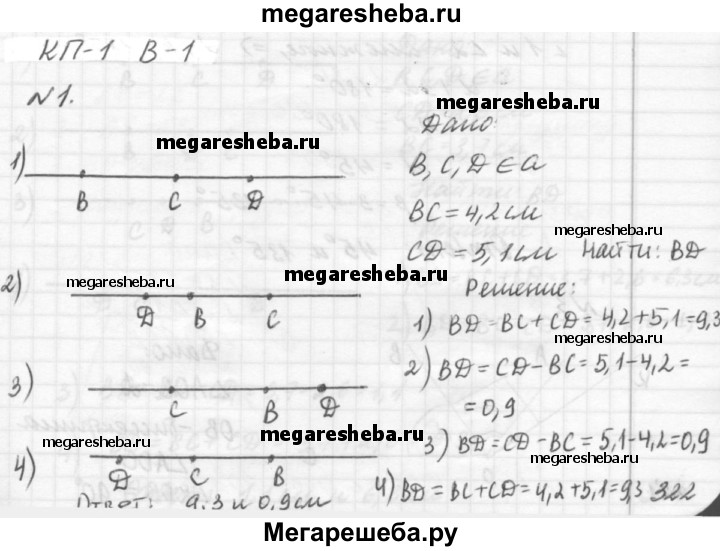 megaresheba.ru
КП-1 В-1
№1.
megaresheba.ru
megaresheba.ru
Дано:
1)
B C D
B, C, D ∈ a
BC = 4,2 см
megaresheba.ru
CD = 5,1 см Найти: BD
megaresheba.ru
megaresheba.ru
Решение:
2)
D B C
1) BD = BC + CD = 4,2 + 5,1 = 9,3
2) BD = CD - BC = 5,1 - 4,2 =
= 0,9
megaresheba.ru
3)
C B D
megaresheba.ru
megaresheba.ru
3) BD = CD - BC = 5,1 - 4,2 = 0,9
megaresheba.ru
4)
D C B
4) BD = BC + CD = 4,2 + 5,1 = 9,3 322
Ответ: 9,3 и 0,9 см
Мегарешеба.ру